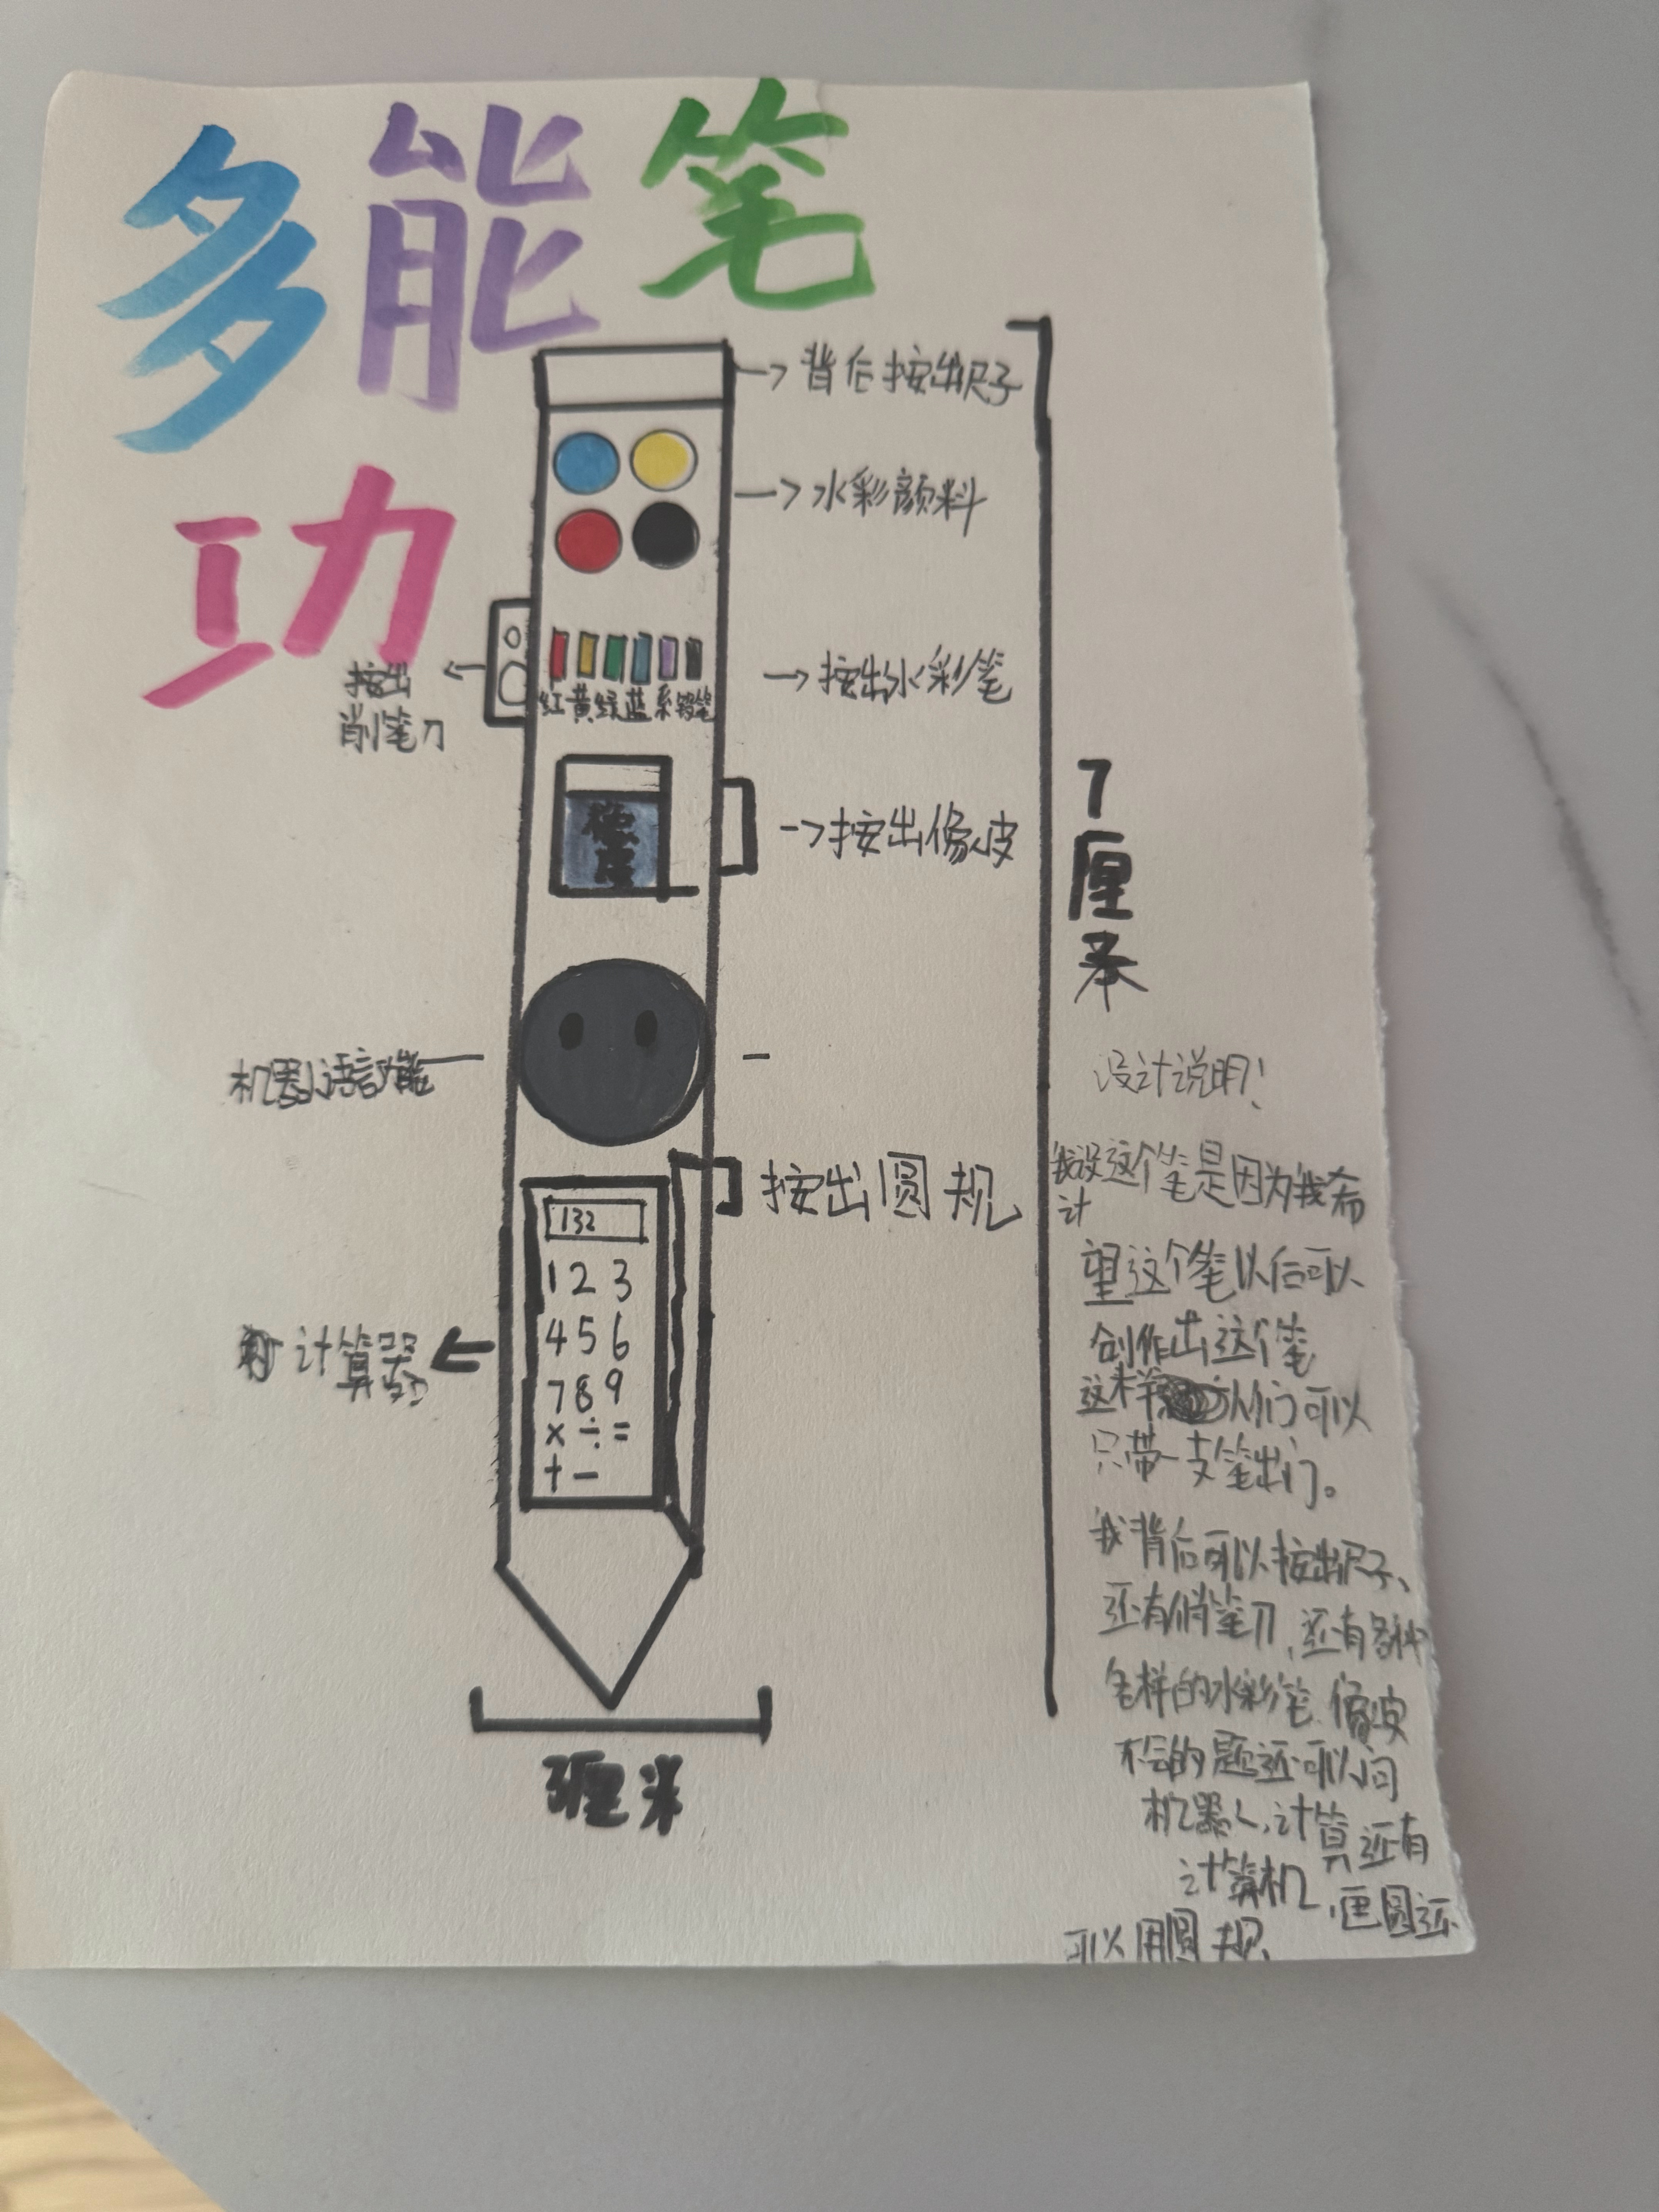 多能笔
功
→背后按出尺子
→水彩颜料
按出
削笔刀
红黄绿蓝 铅笔
→按出水彩笔
橡皮
→按出橡皮
7厘米
机器人语言功能
按出圆规
132
1 2 3
4 5 6
7 8 9
× ÷ =
+ −
计算器
厘米
设计说明!
我设计这个笔是因为我希
望这个笔以后可以
创作出这个笔
这样人们可以
只带一支笔出门。
我背后可以按出尺子、
还有 笔刀,还有各种
各样的水彩笔、橡皮
不会的题还可以问
机器人,计算还有
计算机,画圆还
可以用圆规、